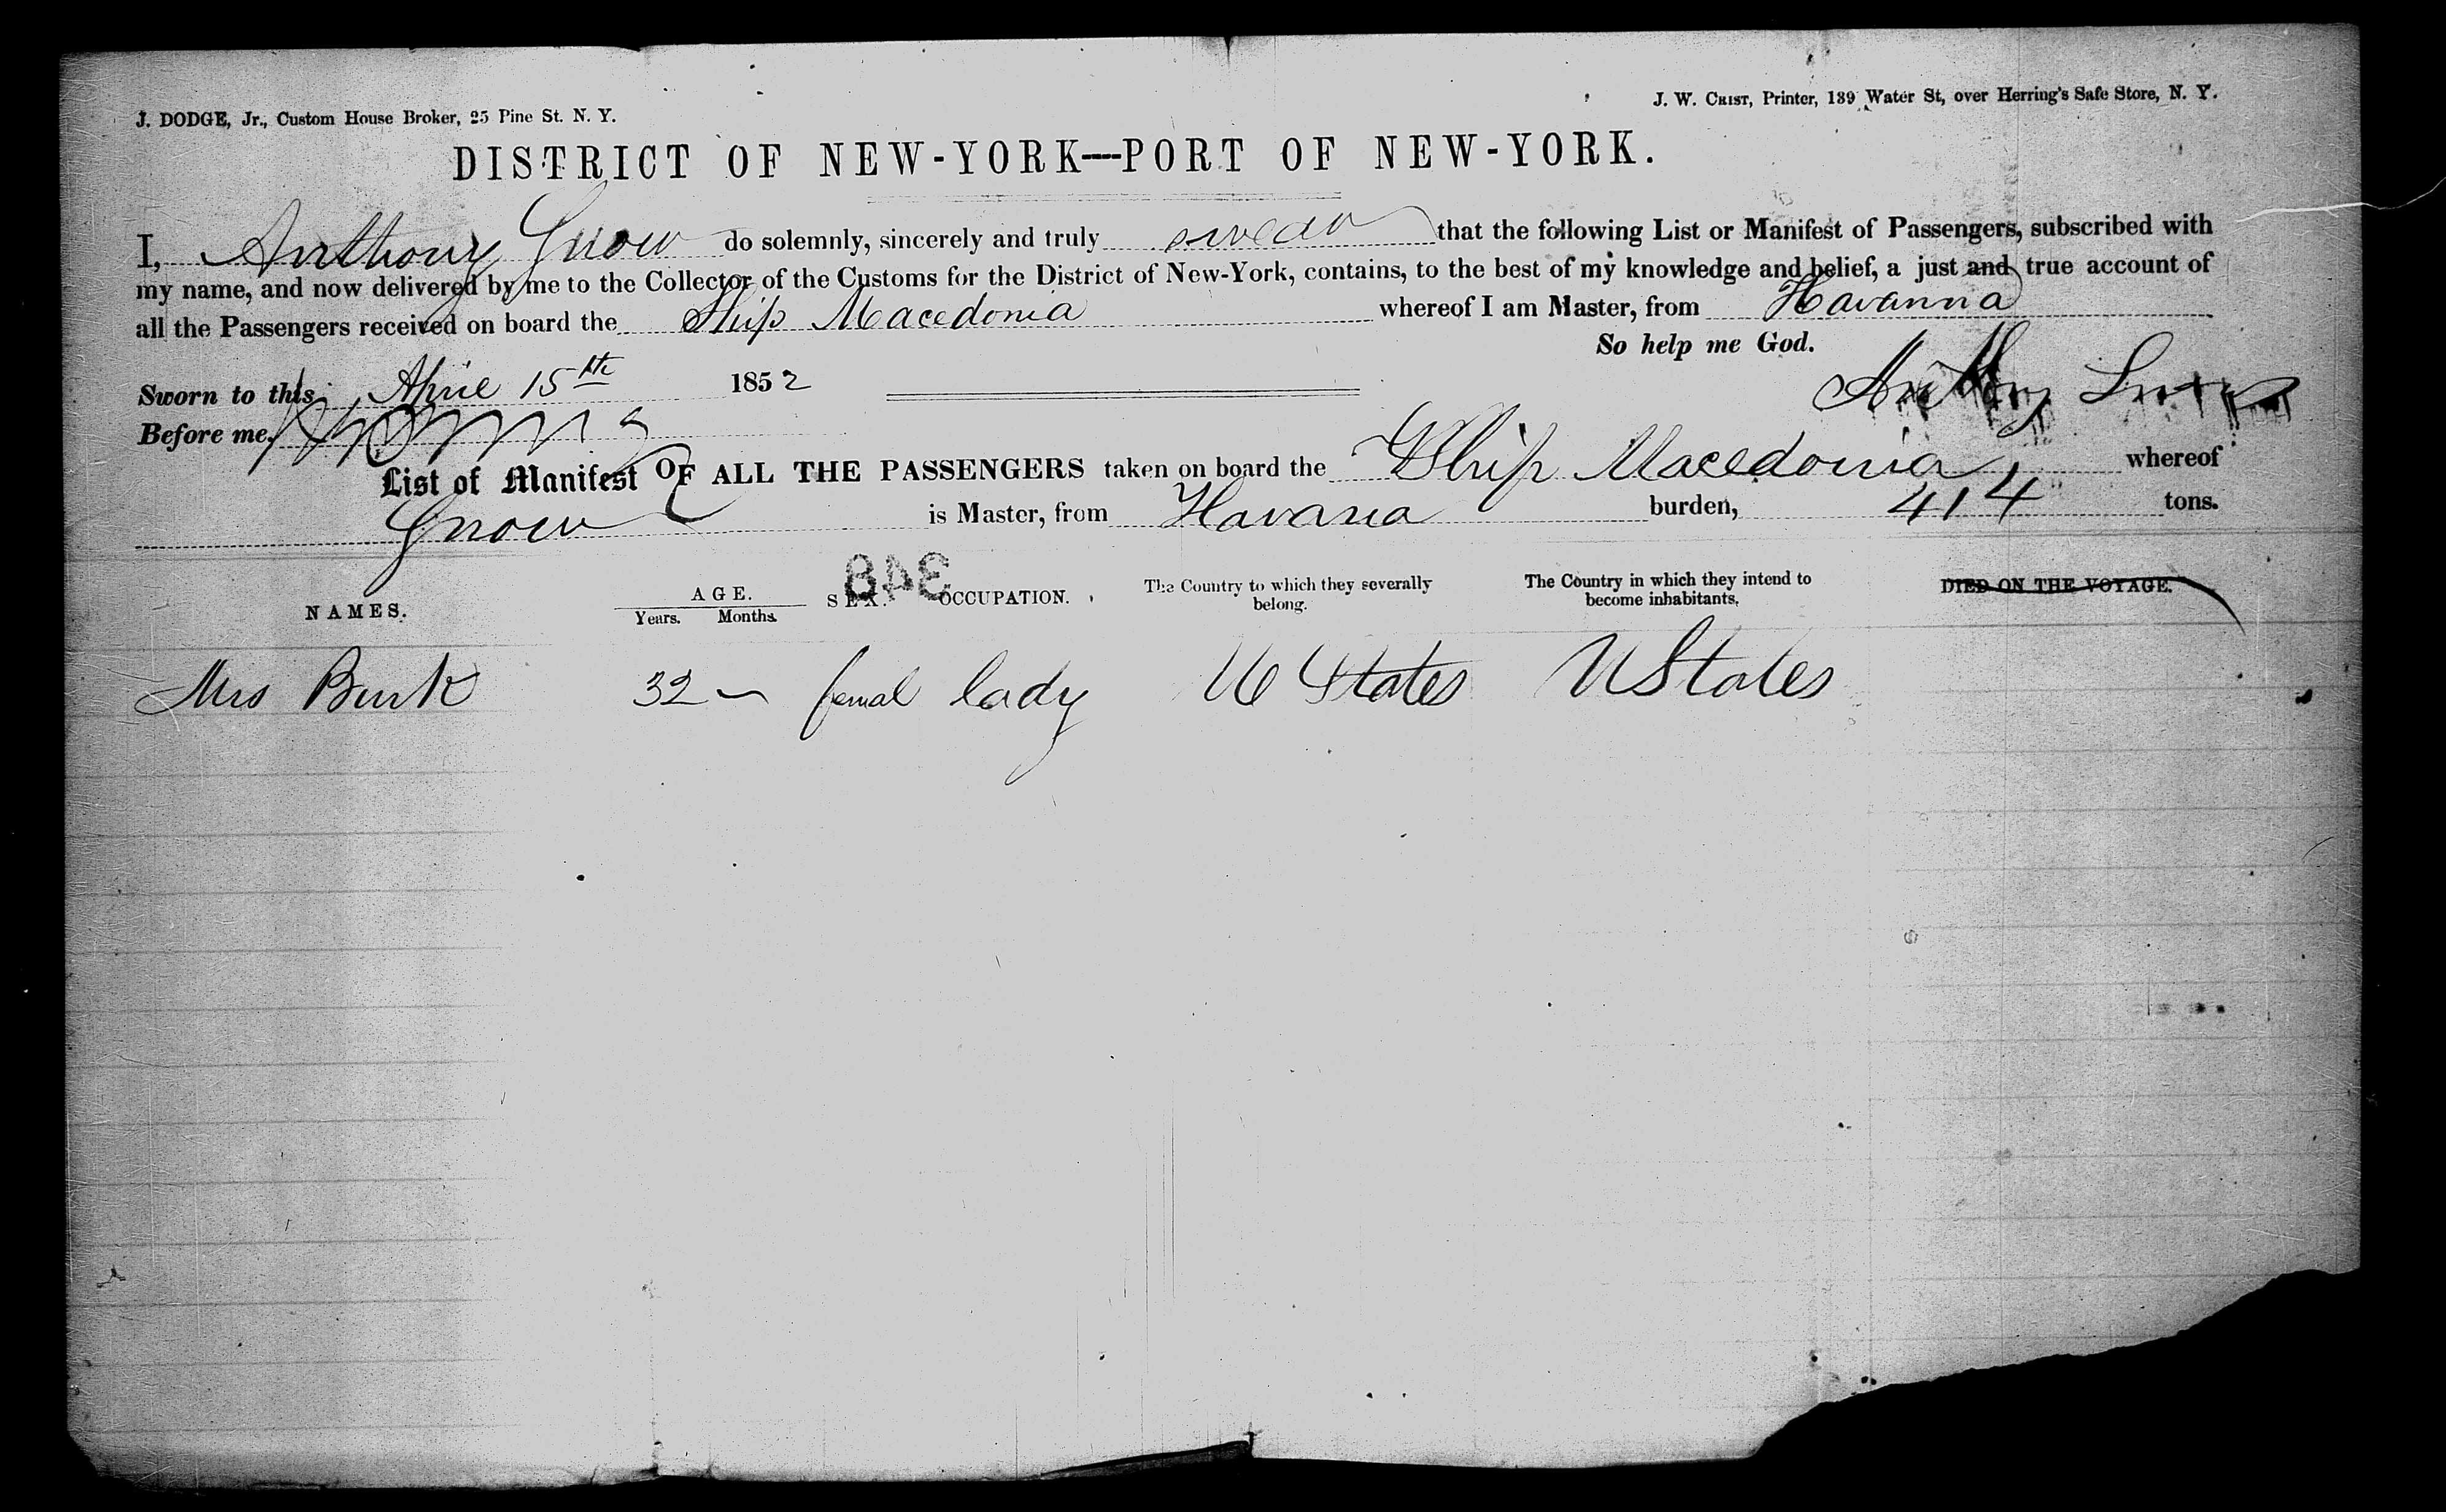 J. DODGE, Jr., Custom House Broker, 25 Pine St. N. Y.
J. W. CRIST, Printer, 139 Water St, over Herring's Safe Store, N. Y.
DISTRICT OF NEW-YORK—PORT OF NEW-YORK.
I, Anthony Snow do solemnly, sincerely and truly swear that the following List or Manifest of Passengers, subscribed with
my name, and now delivered by me to the Collector of the Customs for the District of New-York, contains, to the best of my knowledge and belief, a just and true account of
all the Passengers received on board the Ship Macedonia whereof I am Master, from Havanna
So help me God.
Sworn to this April 15th 1852
Anthony Snow
Before me,
List of Manifest OF ALL THE PASSENGERS taken on board the Ship Macedonia whereof
Snow is Master, from Havana burden, 414 tons.
348
NAMES. AGE. SEX. OCCUPATION. The Country to which they severally belong. The Country in which they intend to become inhabitants. DIED ON THE VOYAGE.
Years. Months.
Mrs Burk 32 – femal lady U States U States